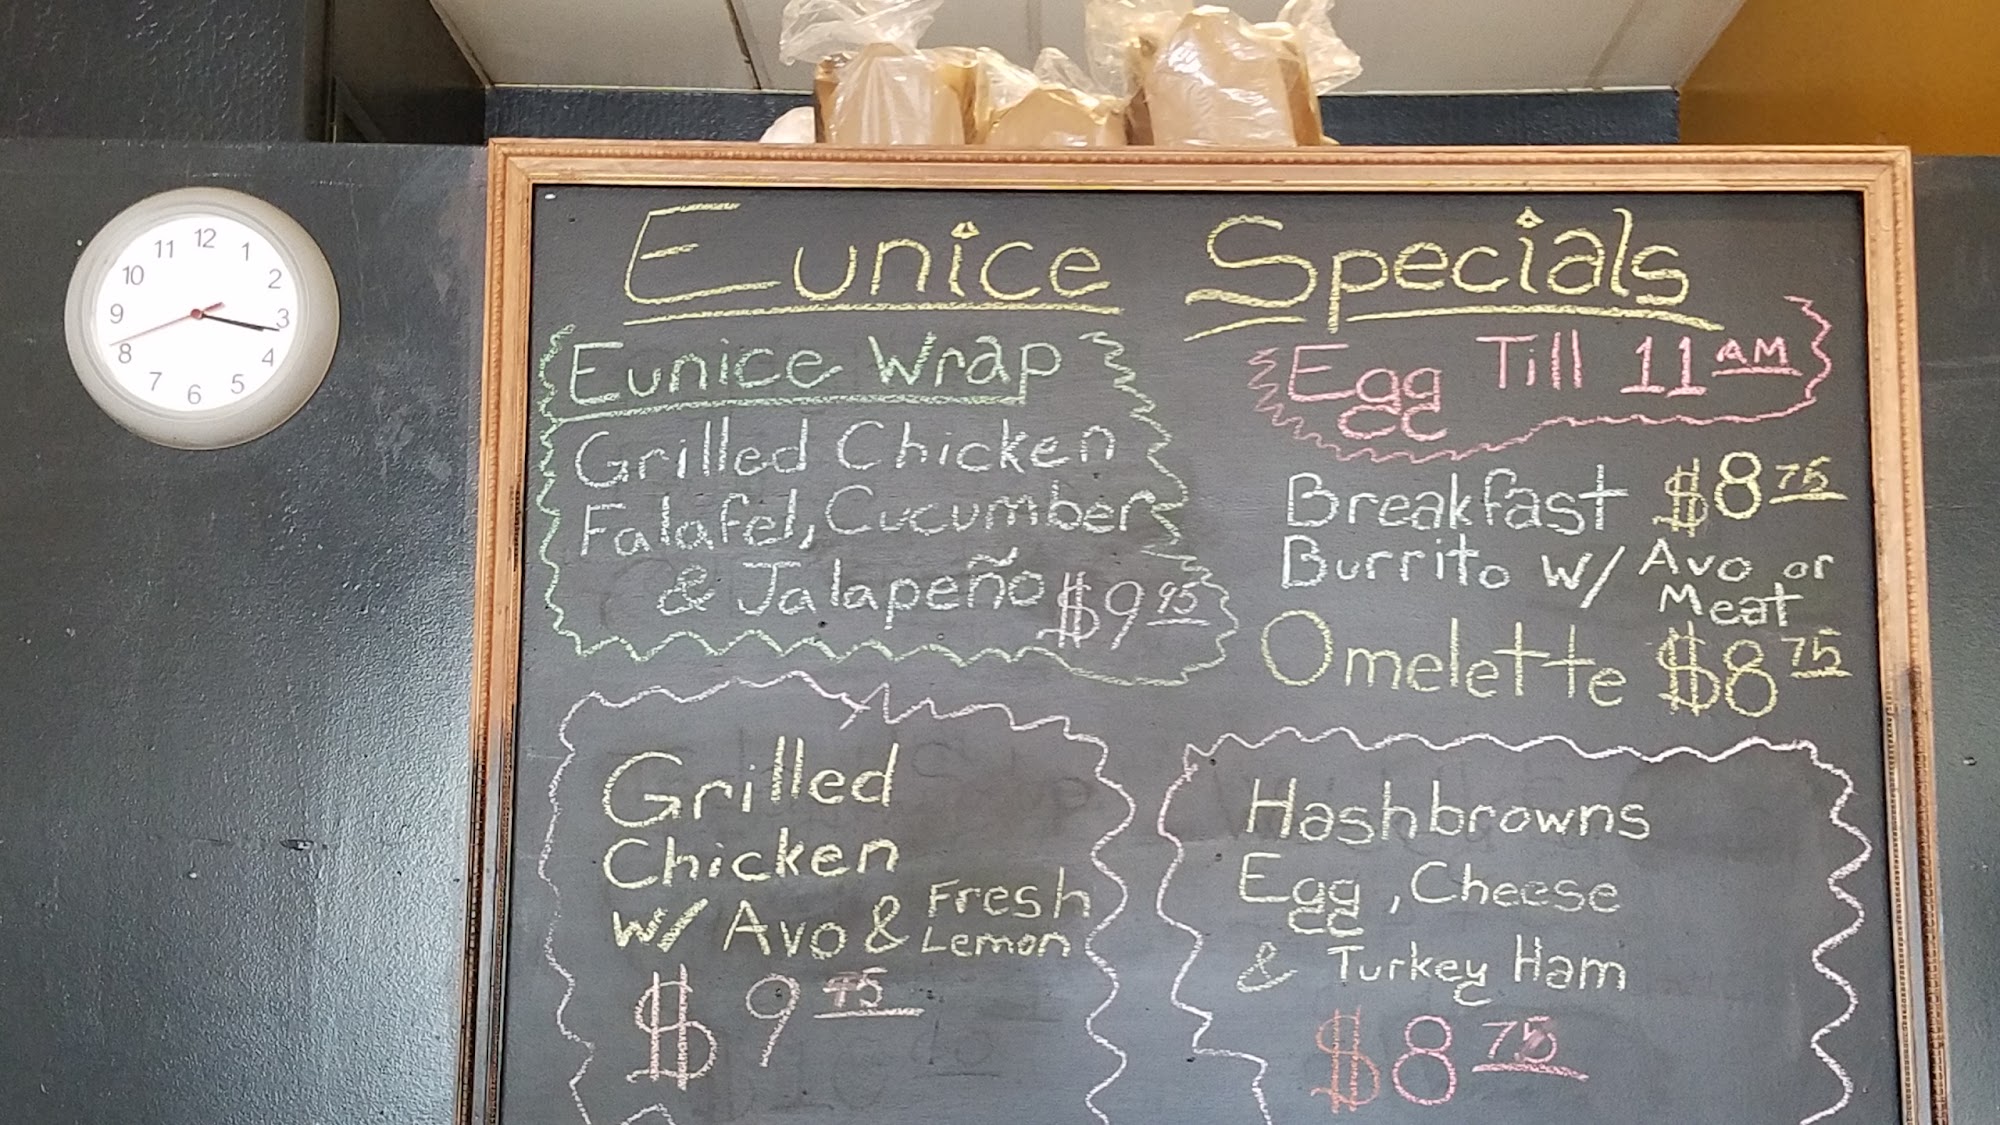 12
1
2
3
4
5
6
7
8
9
10
11
Eunice Specials
Eunice Wrap
Grilled Chicken
Falafel, Cucumber
& Jalapeño $9 95
Egg Till 11 AM
Breakfast $8 75
Burrito w/ Avo or
Meat
Omelette $8 75
Grilled
Chicken
w/ Avo & Fresh
Lemon
$9 75
Hashbrowns
Egg, Cheese
& Turkey Ham
$8 75